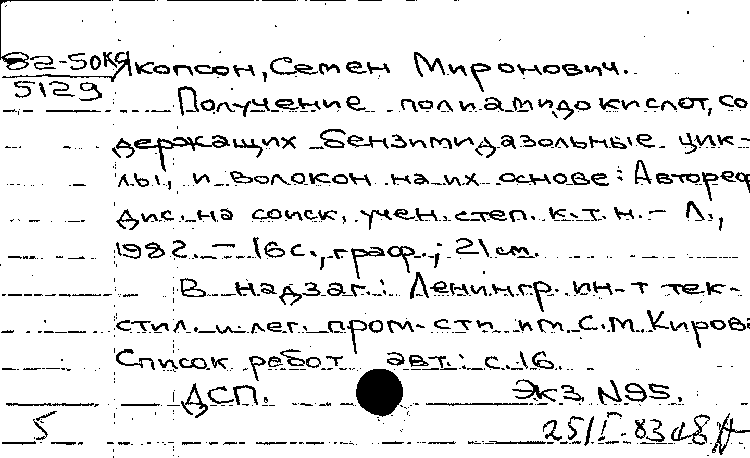 82-50кс Якопсон, Семен Миронович.
5129
Получение полиамидокислот, со
держащих бензимидазольные цик-
лы, и волокон на их основе: Автореф
дис. на соиск. учен. степ. к.т.н. - Л.,
1982. - 16 с., граф.; 21 см.
В надзаг.: Ленингр. ин-т тек-
стил. и лег. пром-сти им С.М. Кирова
Список работ авт.: с. 16.
ДСП. Экз. N95.
5 25/I-83